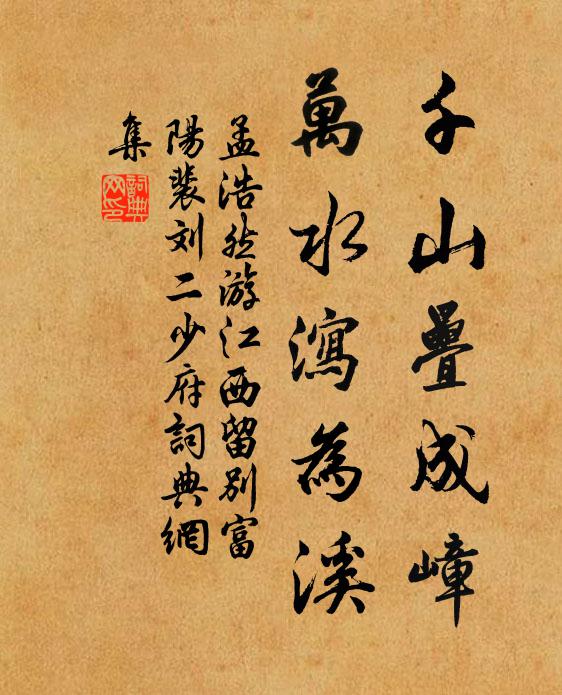 千山疊成嶂
萬水瀉為溪
孟浩然游江西留别富
陽裴刘二少府詞典網
集
詞典網印